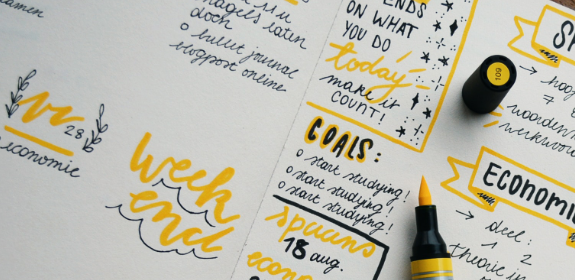 examen
nagels laten
doen
o bullet journal
blogpost online
vr
28
economie
week
end
ENDS
ON WHAT
YOU DO
today
make it
COUNT!
GOALS:
o start studying!
o start studying!
o start studying!
spaans
18 aug.
econo
109
SP
→ hoo
woorden
werkwoo
ECONOMI
→ deel:
1 2
theorie in